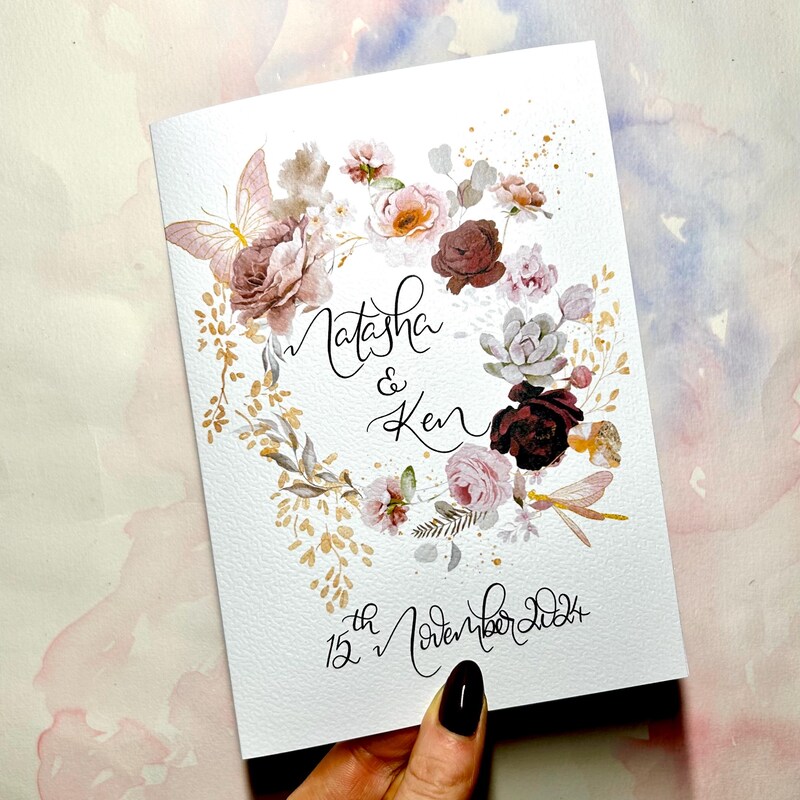 Natasha
&
Ken
15th November 2024